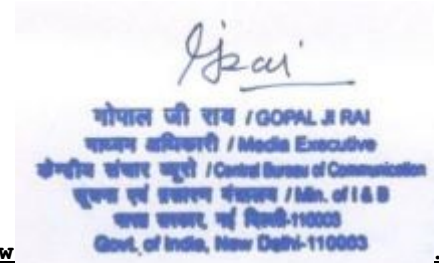 गोपाल जी राय / GOPAL JI RAI
माध्यम अधिकारी / Media Executive
केन्द्रीय संचार ब्यूरो / Central Bureau of Communication
सूचना एवं प्रसारण मंत्रालय / Min. of I & B
भारत सरकार, नई दिल्ली-110003
Govt. of India, New Delhi-110003
w .